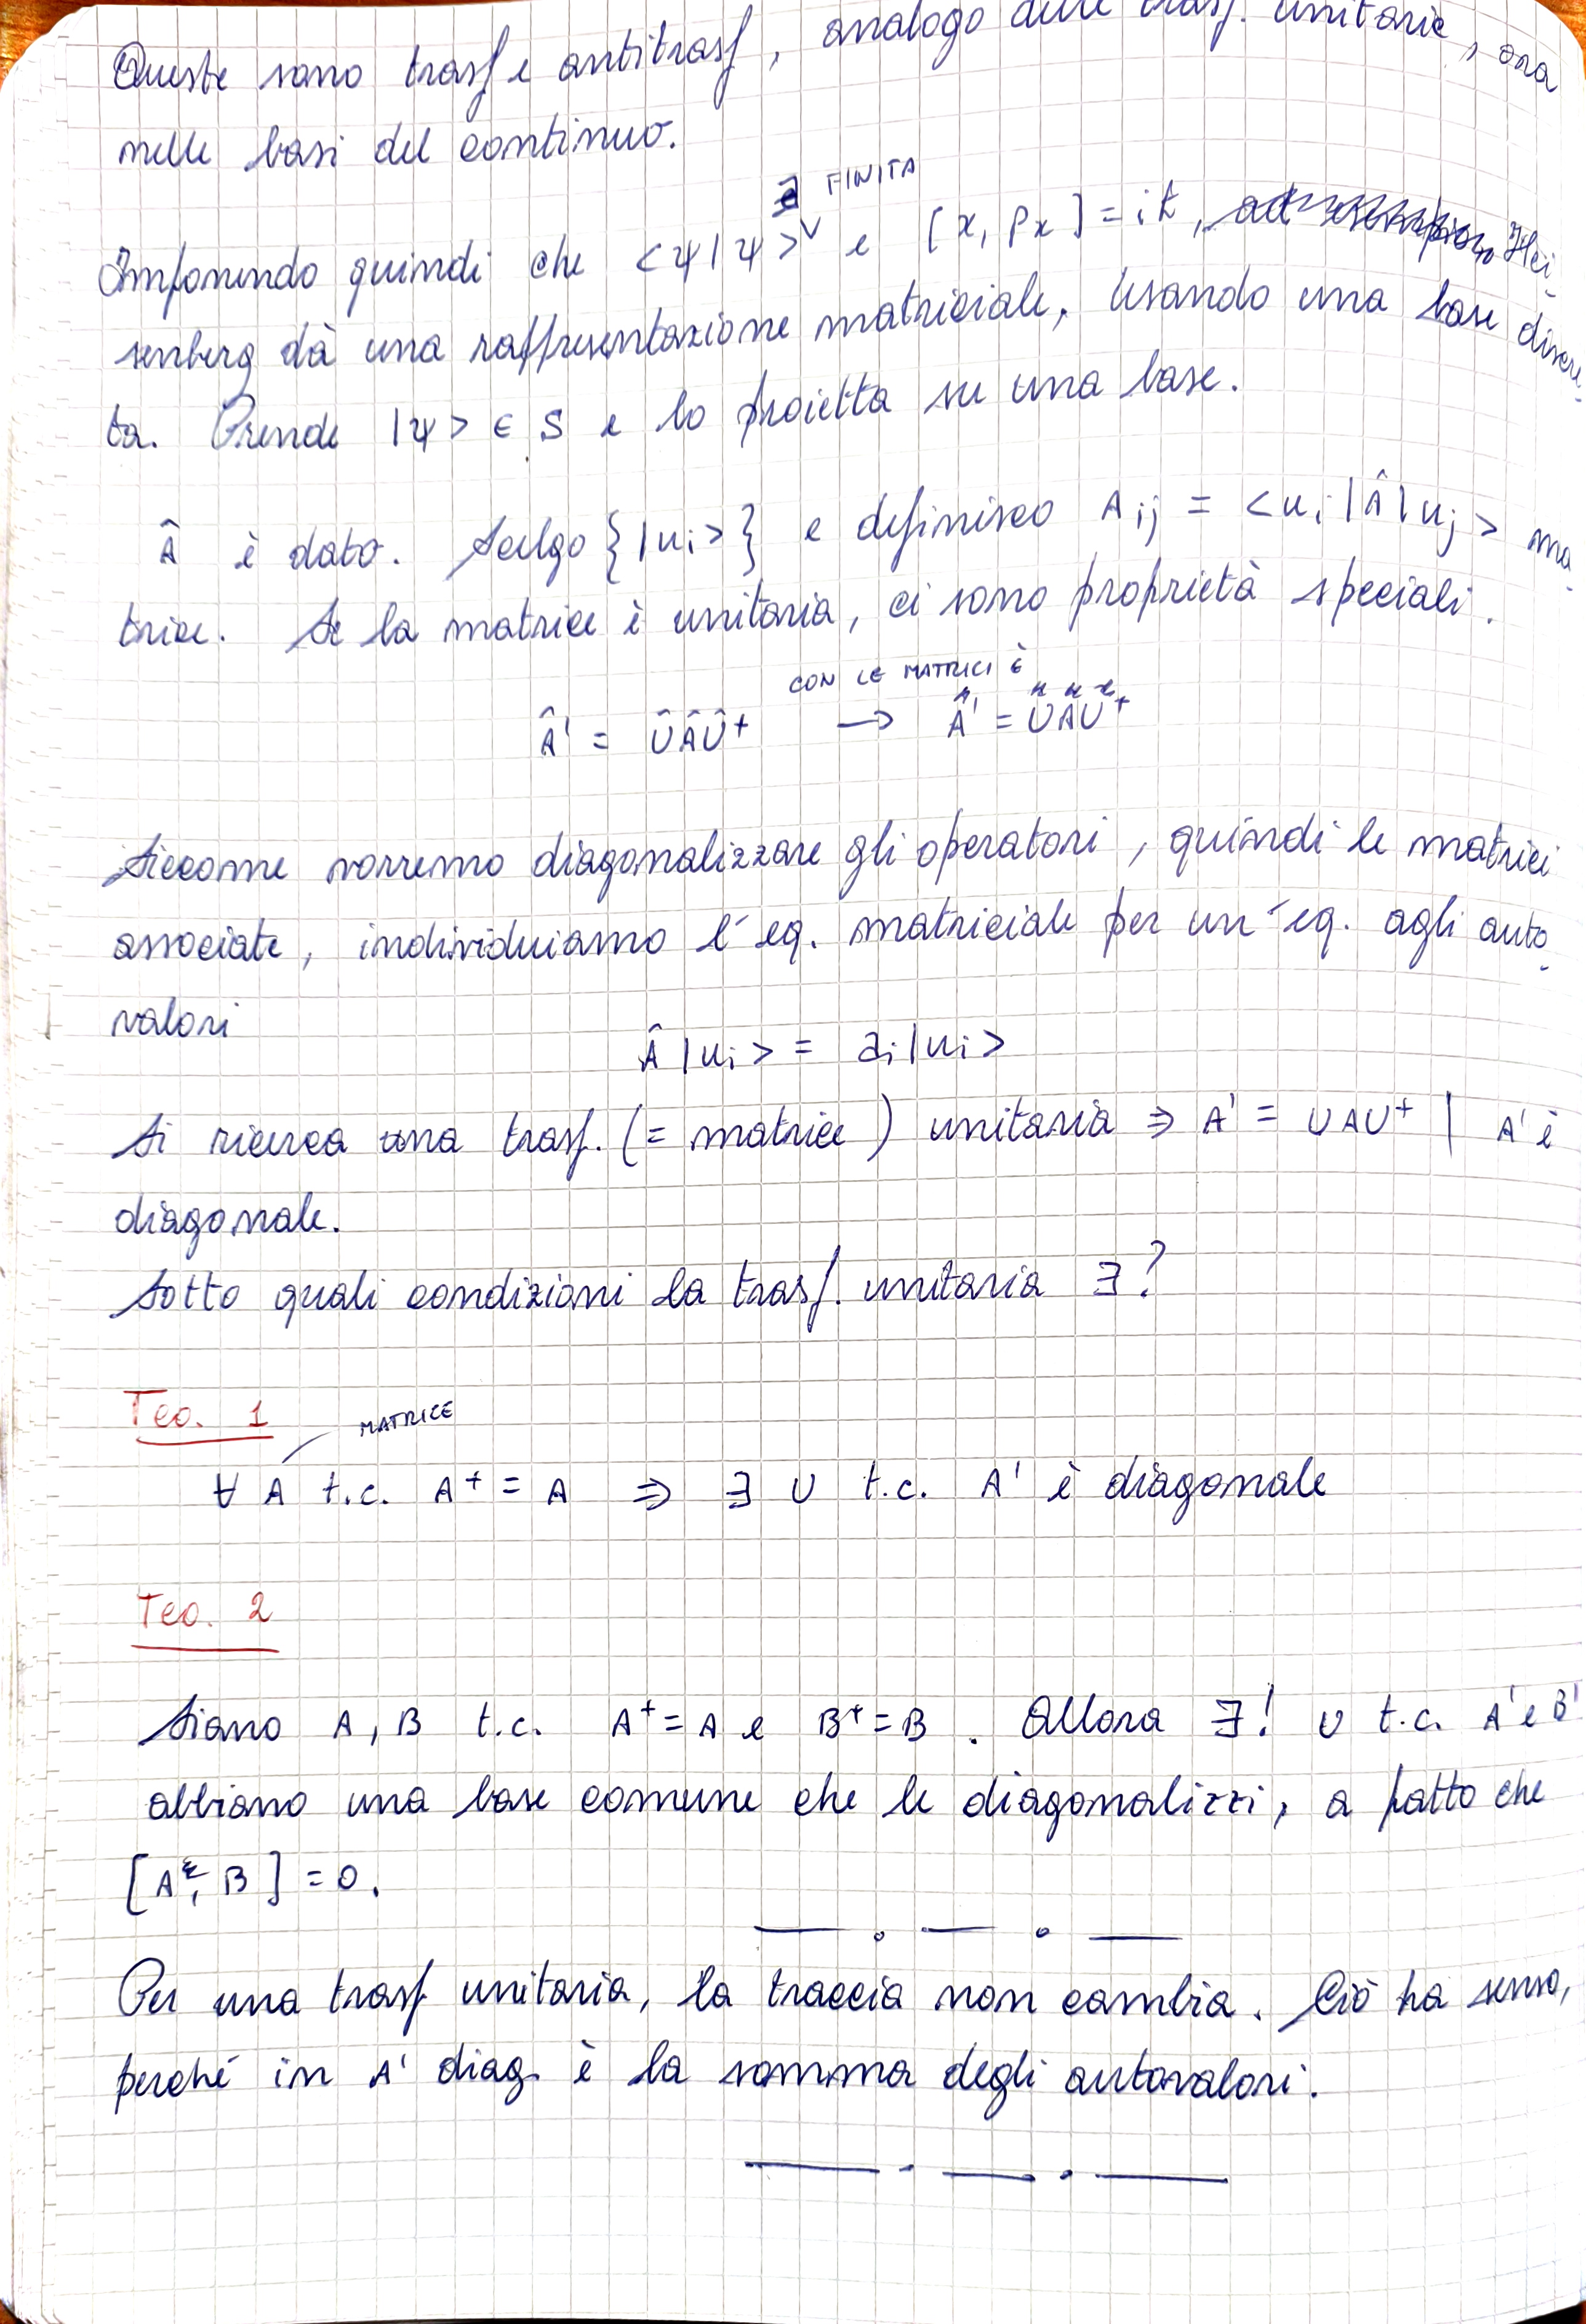 Queste sono trasf e antitrasf, analogo delle trasf. unitarie, ora
nelle basi del continuo.
∃ FINITA
Imponendo quindi che <ψ|ψ> e [x, px] = iℏ, Hei-
senberg dà una rappresentazione matriciale, usando una base discre-
ta. Prende |ψ> ∈ S e lo proietta su una base.
Â è dato. Scelgo {|ui>} e definisco Aij = <ui|Â|uj> ma-
trice. Se la matrice è unitaria, ci sono proprietà speciali.
CON LE MATRICI È
Â' = ÛÂÛ⁺ → A' = UAU⁺
Siccome vorremo diagonalizzare gli operatori, quindi le matrici
associate, individuiamo l'eq. matriciale per un'eq. agli auto-
valori
Â|ui> = ai|ui>
Si ricerca una trasf. (= matrice) unitaria ⇒ A' = UAU⁺ | A' è
diagonale.
Sotto quali condizioni la trasf. unitaria ∃?
Teo. 1
MATRICE
∀ A t.c. A⁺ = A ⇒ ∃ U t.c. A' è diagonale
Teo. 2
Siano A, B t.c. A⁺ = A e B⁺ = B. Allora ∃! U t.c. A' e B'
abbiano una base comune che le diagonalizzi, a patto che
[A, B] = 0.
Per una trasf unitaria, la traccia non cambia. Ciò ha senso,
perché in A' diag. è la somma degli autovalori.